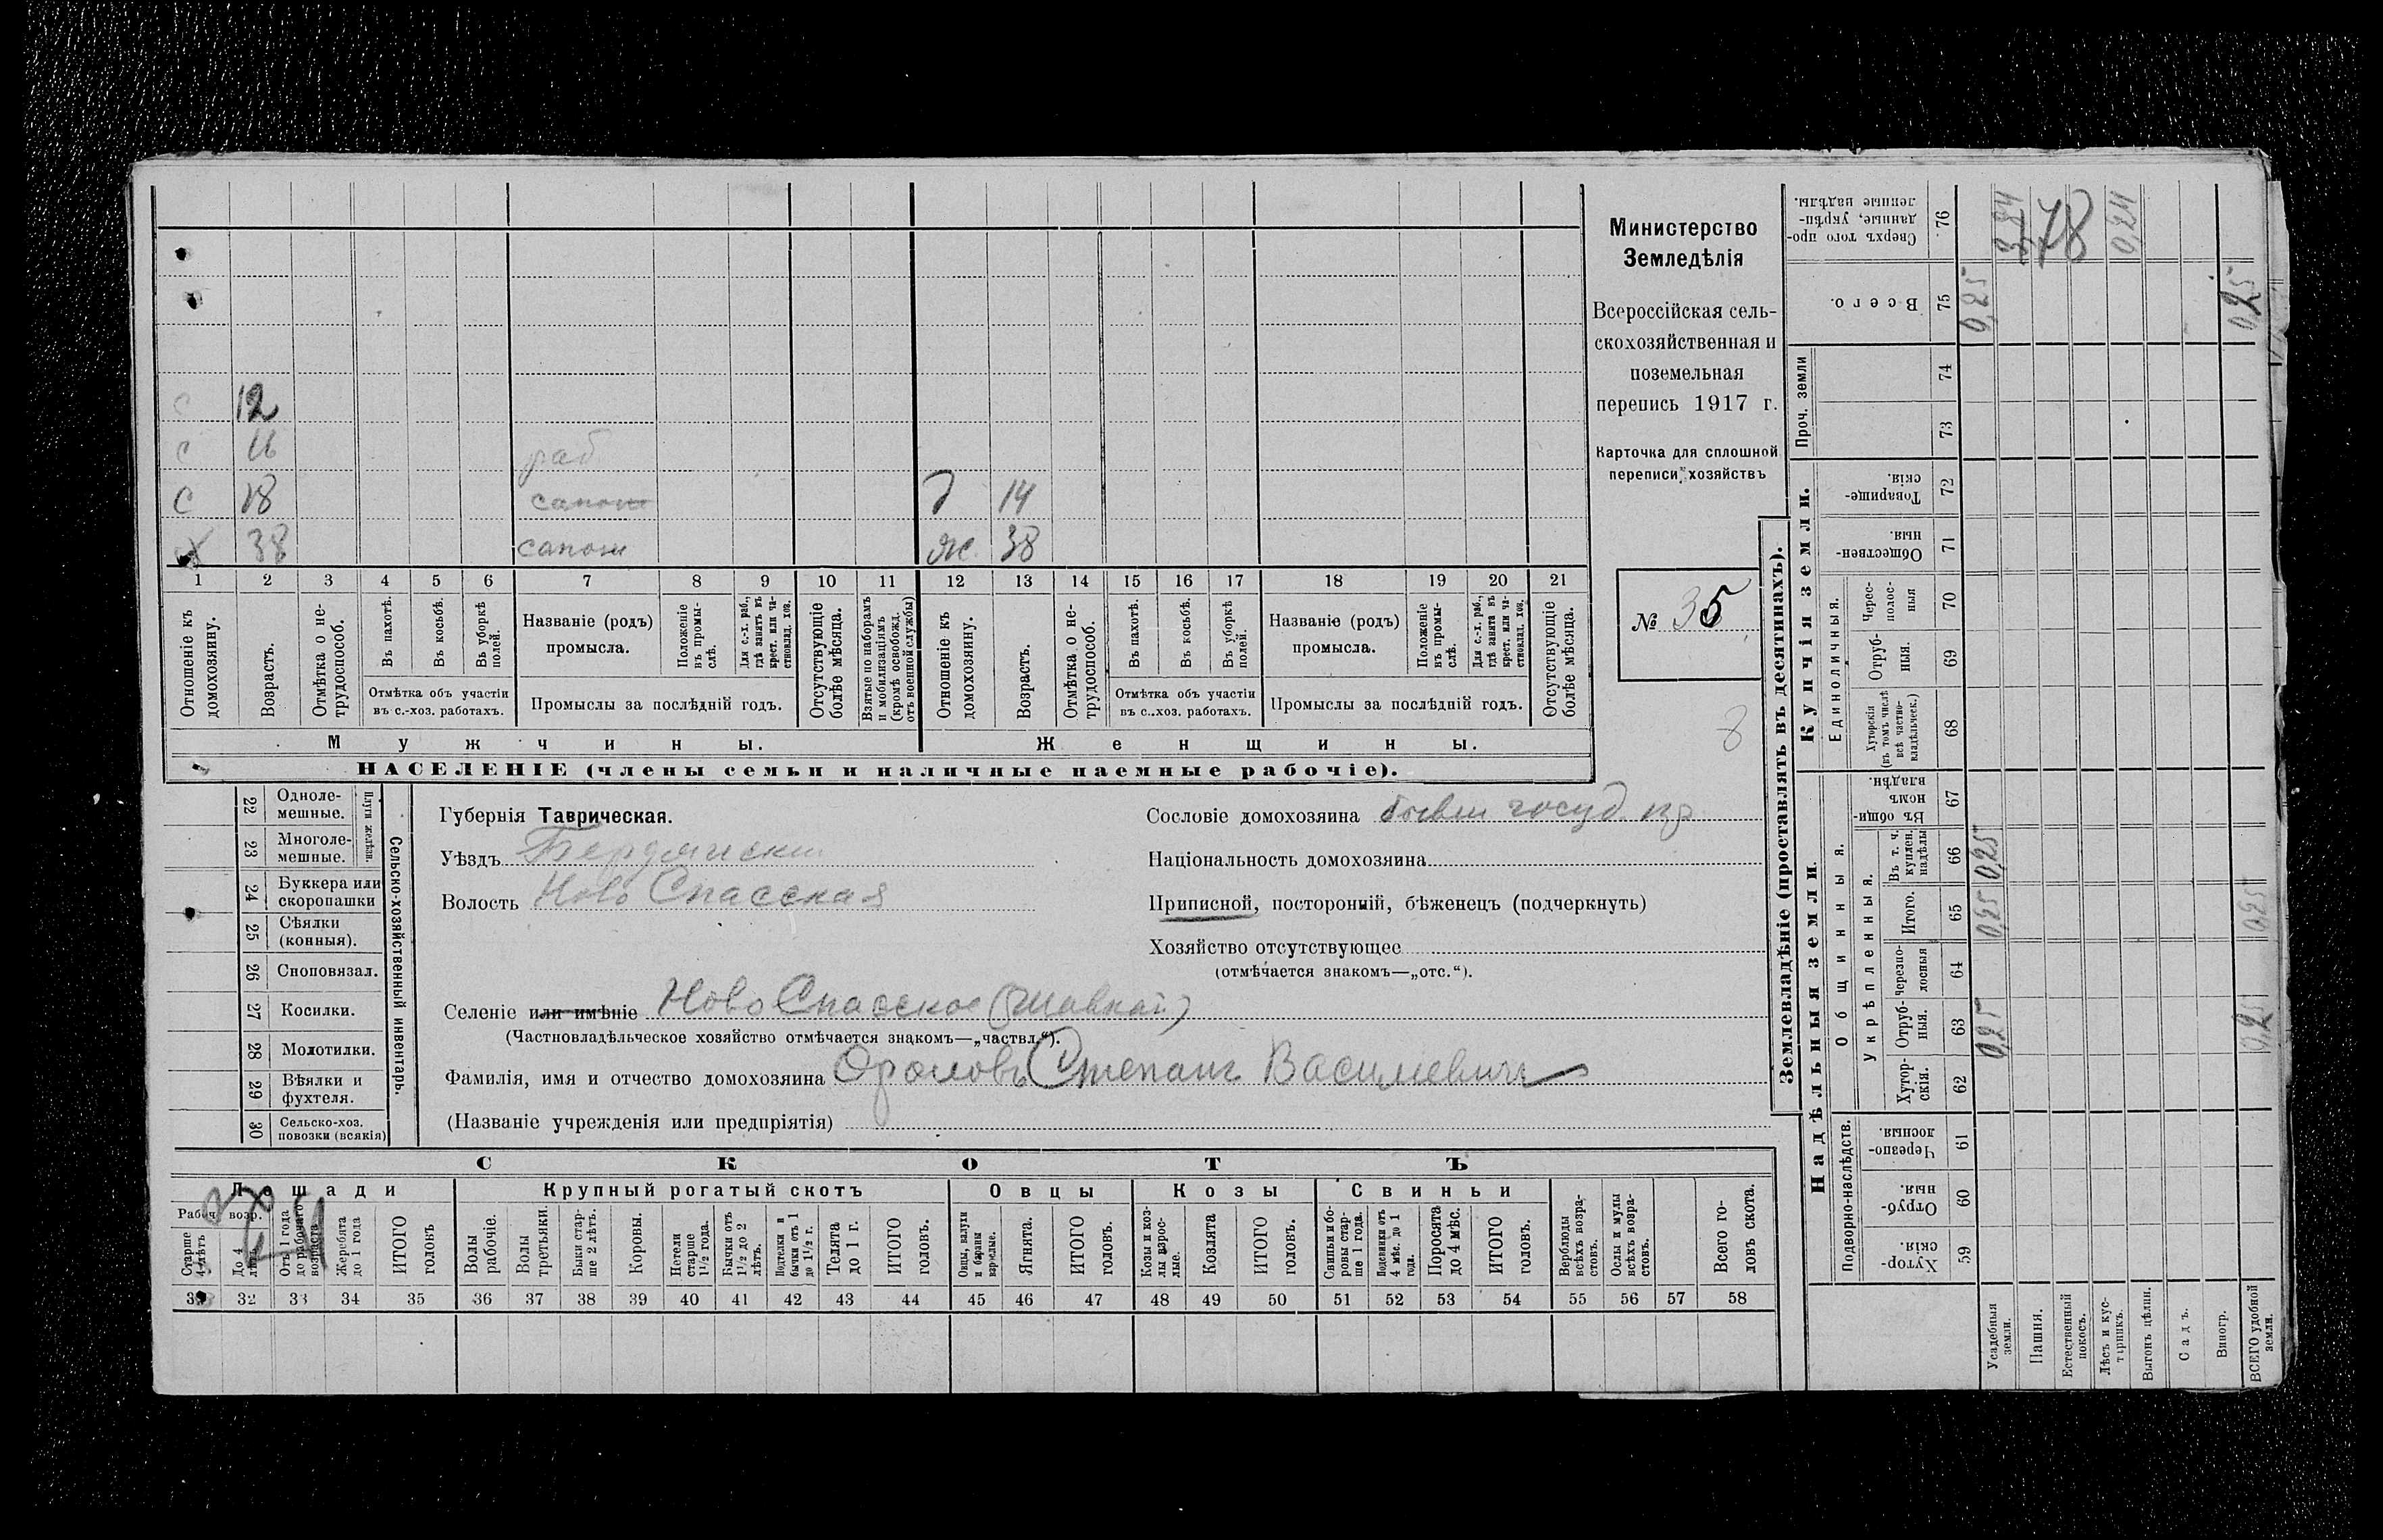 с 12
с 16 раб
с 18 сапож д 14
х 38 сапож ж. 38
1 2 3 4 5 6 7 8 9 10 11 12 13 14 15 16 17 18 19 20 21
Отношеніе къ домохозяину.
Возрастъ.
Отмѣтка о не-трудоспособ.
Въ пахотѣ.
Въ косьбѣ.
Въ уборкѣ полей.
Отмѣтка объ участіи
въ с.-хоз. работахъ.
Названіе (родъ)
промысла.
Положеніе въ промы-слѣ.
Для с.-х. раб., гдѣ занятъ въ крест. или ча-стновлад. хоз.
Промыслы за послѣдній годъ.
Отсутствующіе болѣе мѣсяца.
Взятые по наборамъ и мобилизаціямъ (кромѣ освобожд. отъ военной службы)
Отношеніе къ домохозяину.
Возрастъ.
Отмѣтка о не-трудоспособ.
Въ пахотѣ.
Въ косьбѣ.
Въ уборкѣ полей.
Отмѣтка объ участіи
въ с.-хоз. работахъ.
Названіе (родъ)
промысла.
Положеніе въ промы-слѣ.
Для с.-х. раб., гдѣ занята въ крест. или ча-стновлад. хоз.
Промыслы за послѣдній годъ.
Отсутствующіе болѣе мѣсяца.
Мужчины.
Женщины.
НАСЕЛЕНІЕ (члены семьи и наличные наемные рабочіе).
Министерство
Земледѣлія
Всероссійская сель-
скохозяйственная и
поземельная
перепись 1917 г.
Карточка для сплошной
переписи хозяйствъ
№ 35
8
22 Одноле-мешные.
23 Многоле-мешные.
Плуги желѣзн.
24 Буккера или скоропашки
25 Сѣялки (конныя).
26 Сноповязал.
27 Косилки.
28 Молотилки.
29 Вѣялки и фухтеля.
30 Сельско-хоз. повозки (всякія)
Сельско-хозяйственный инвентарь.
Губернія Таврическая.
Уѣздъ Бердянскій
Волость Ново Спасская
Сословіе домохозяина бывш госуд. кр
Національность домохозяина
Приписной, посторонній, бѣженецъ (подчеркнуть)
Хозяйство отсутствующее
(отмѣчается знакомъ—„отс.“).
Селеніе или имѣніе Ново Спасское
(Частновладѣльческое хозяйство отмѣчается знакомъ—„частвл.“).
Фамилія, имя и отчество домохозяина Степанъ Василіевичъ
(Названіе учрежденія или предпріятія)
СКОТЪ
Лошади
Рабоч. возр.
Старше 4 лѣтъ
До 4 лѣтъ
Отъ 1 года до рабочаго возраста
Жеребята до 1 года
ИТОГО головъ
Крупный рогатый скотъ
Волы рабочіе.
Волы третьяки.
Быки стар-ше 2 лѣтъ.
Коровы.
Нетели старше 1½ года.
Бычки отъ 1½ до 2 лѣтъ.
Подтелки и бычки отъ 1 до 1½ г.
Телята до 1 г.
ИТОГО головъ.
Овцы
Овцы, валухи и бараны взрослые.
Ягнята.
ИТОГО головъ.
Козы
Козы и коз-лы взрос-лые.
Козлята
ИТОГО головъ.
Свиньи
Свиньи и бо-ровы стар-ше 1 года.
Подсвинки отъ 4 мѣс. до 1 года.
Поросята до 4 мѣс.
ИТОГО головъ.
Верблюды всѣхъ возра-стовъ.
Ослы и мулы всѣхъ возра-стовъ.
Всего го-ловъ скота.
31 32 33 34 35 36 37 38 39 40 41 42 43 44 45 46 47 48 49 50 51 52 53 54 55 56 57 58
Землевладѣніе (проставлять въ десятинахъ).
Купчія земли.
Надѣльныя земли.
Сверхъ того про-данные, укрѣп-ленные надѣлы. 76
Всего. 75 0,25
Проч. земли 74 73
Товарище-скія. 72
Обществен-ныя. 71
Единоличныя.
Черес-полос-ныя 70
Отруб-ныя. 69
Хуторскія (въ томъ числѣ всѣ частно-владѣльческ.) 68
Общинныя.
Въ общи-номъ владѣн. 67
Укрѣпленныя.
Въ т. ч. куплен. надѣлы 66 0,25
Итого. 65 0,25 0,25
Черезпо-лосныя 64
Отруб-ныя. 63 0,25 0,25
Хутор-скія. 62
Подворно-наслѣдств.
Черезпо-лосныя. 61
Отруб-ныя. 60
Хутор-скія. 59
Усадебныя земли.
Пашня.
Естественный покосъ.
Лѣсъ и кус-тарникъ.
Выгонъ цѣлин.
Садъ.
Виногр.
ВСЕГО удобной земли.
78
0,24
0,25